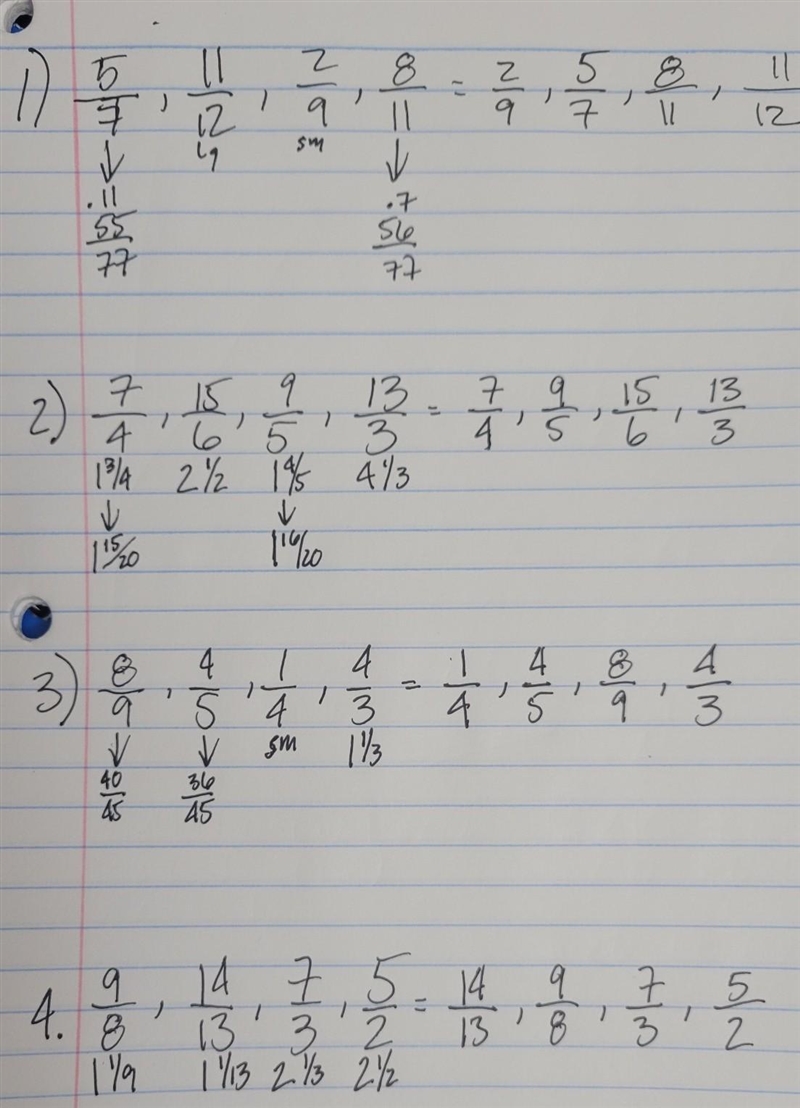 1) 5/7, 11/12, 2/9, 8/11 = 2/9, 5/7, 8/11, 11/12
lg sm
.11 .7
55/77 56/77
2.) 7/4, 15/6, 9/5, 13/3 = 7/4, 9/5, 15/6, 13/3
1 3/4 2 1/2 1 4/5 4 1/3
1 15/20 1 16/20
3) 8/9, 4/5, 1/4, 4/3 = 1/4, 4/5, 8/9, 4/3
sm 1 1/3
40/45 36/45
4. 9/8, 14/13, 7/3, 5/2 = 14/13, 9/8, 7/3, 5/2
1 1/9 1 1/13 2 1/3 2 1/2